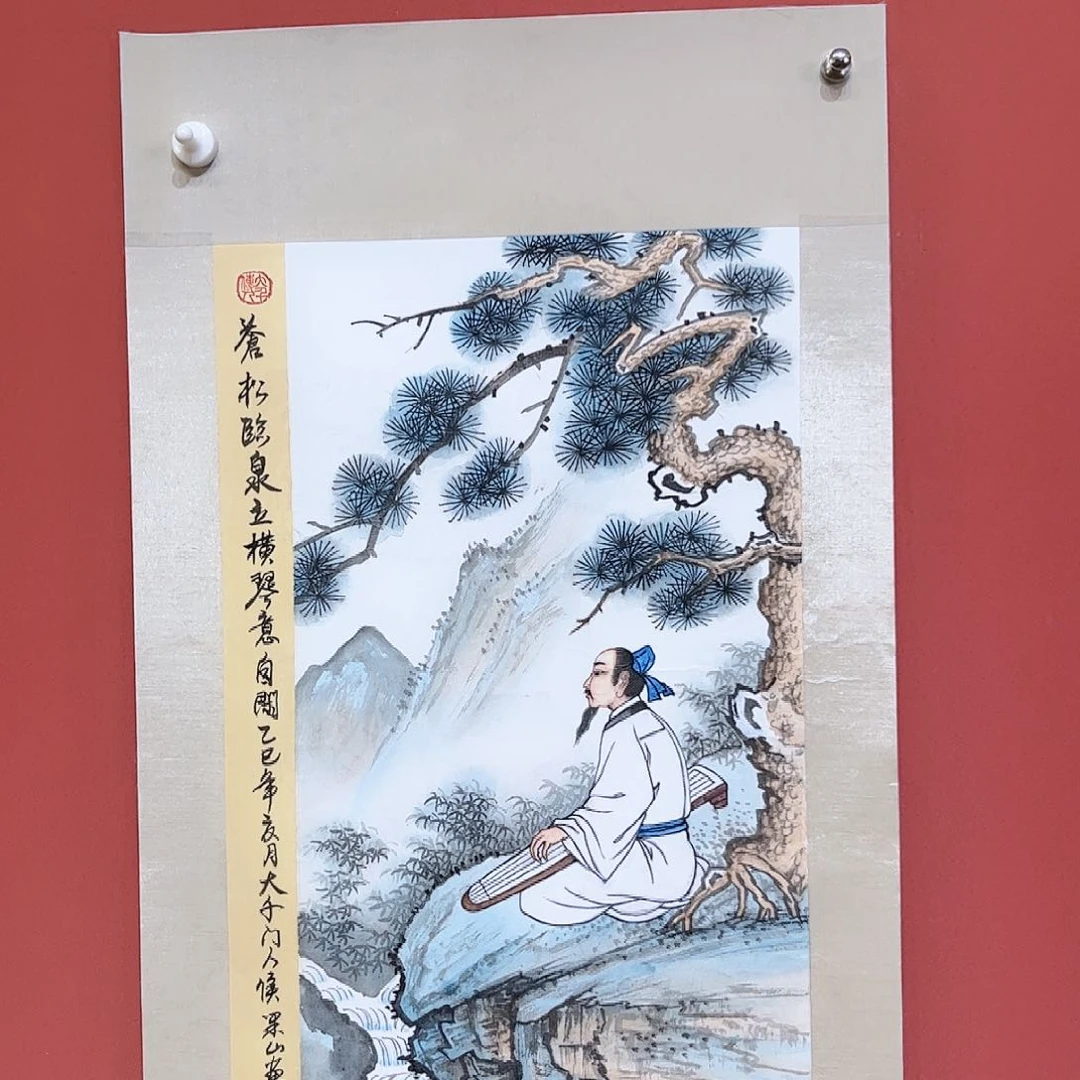 蒼松臨泉立橫琴意自閑乙巳年亥月大千门人侯果山畵